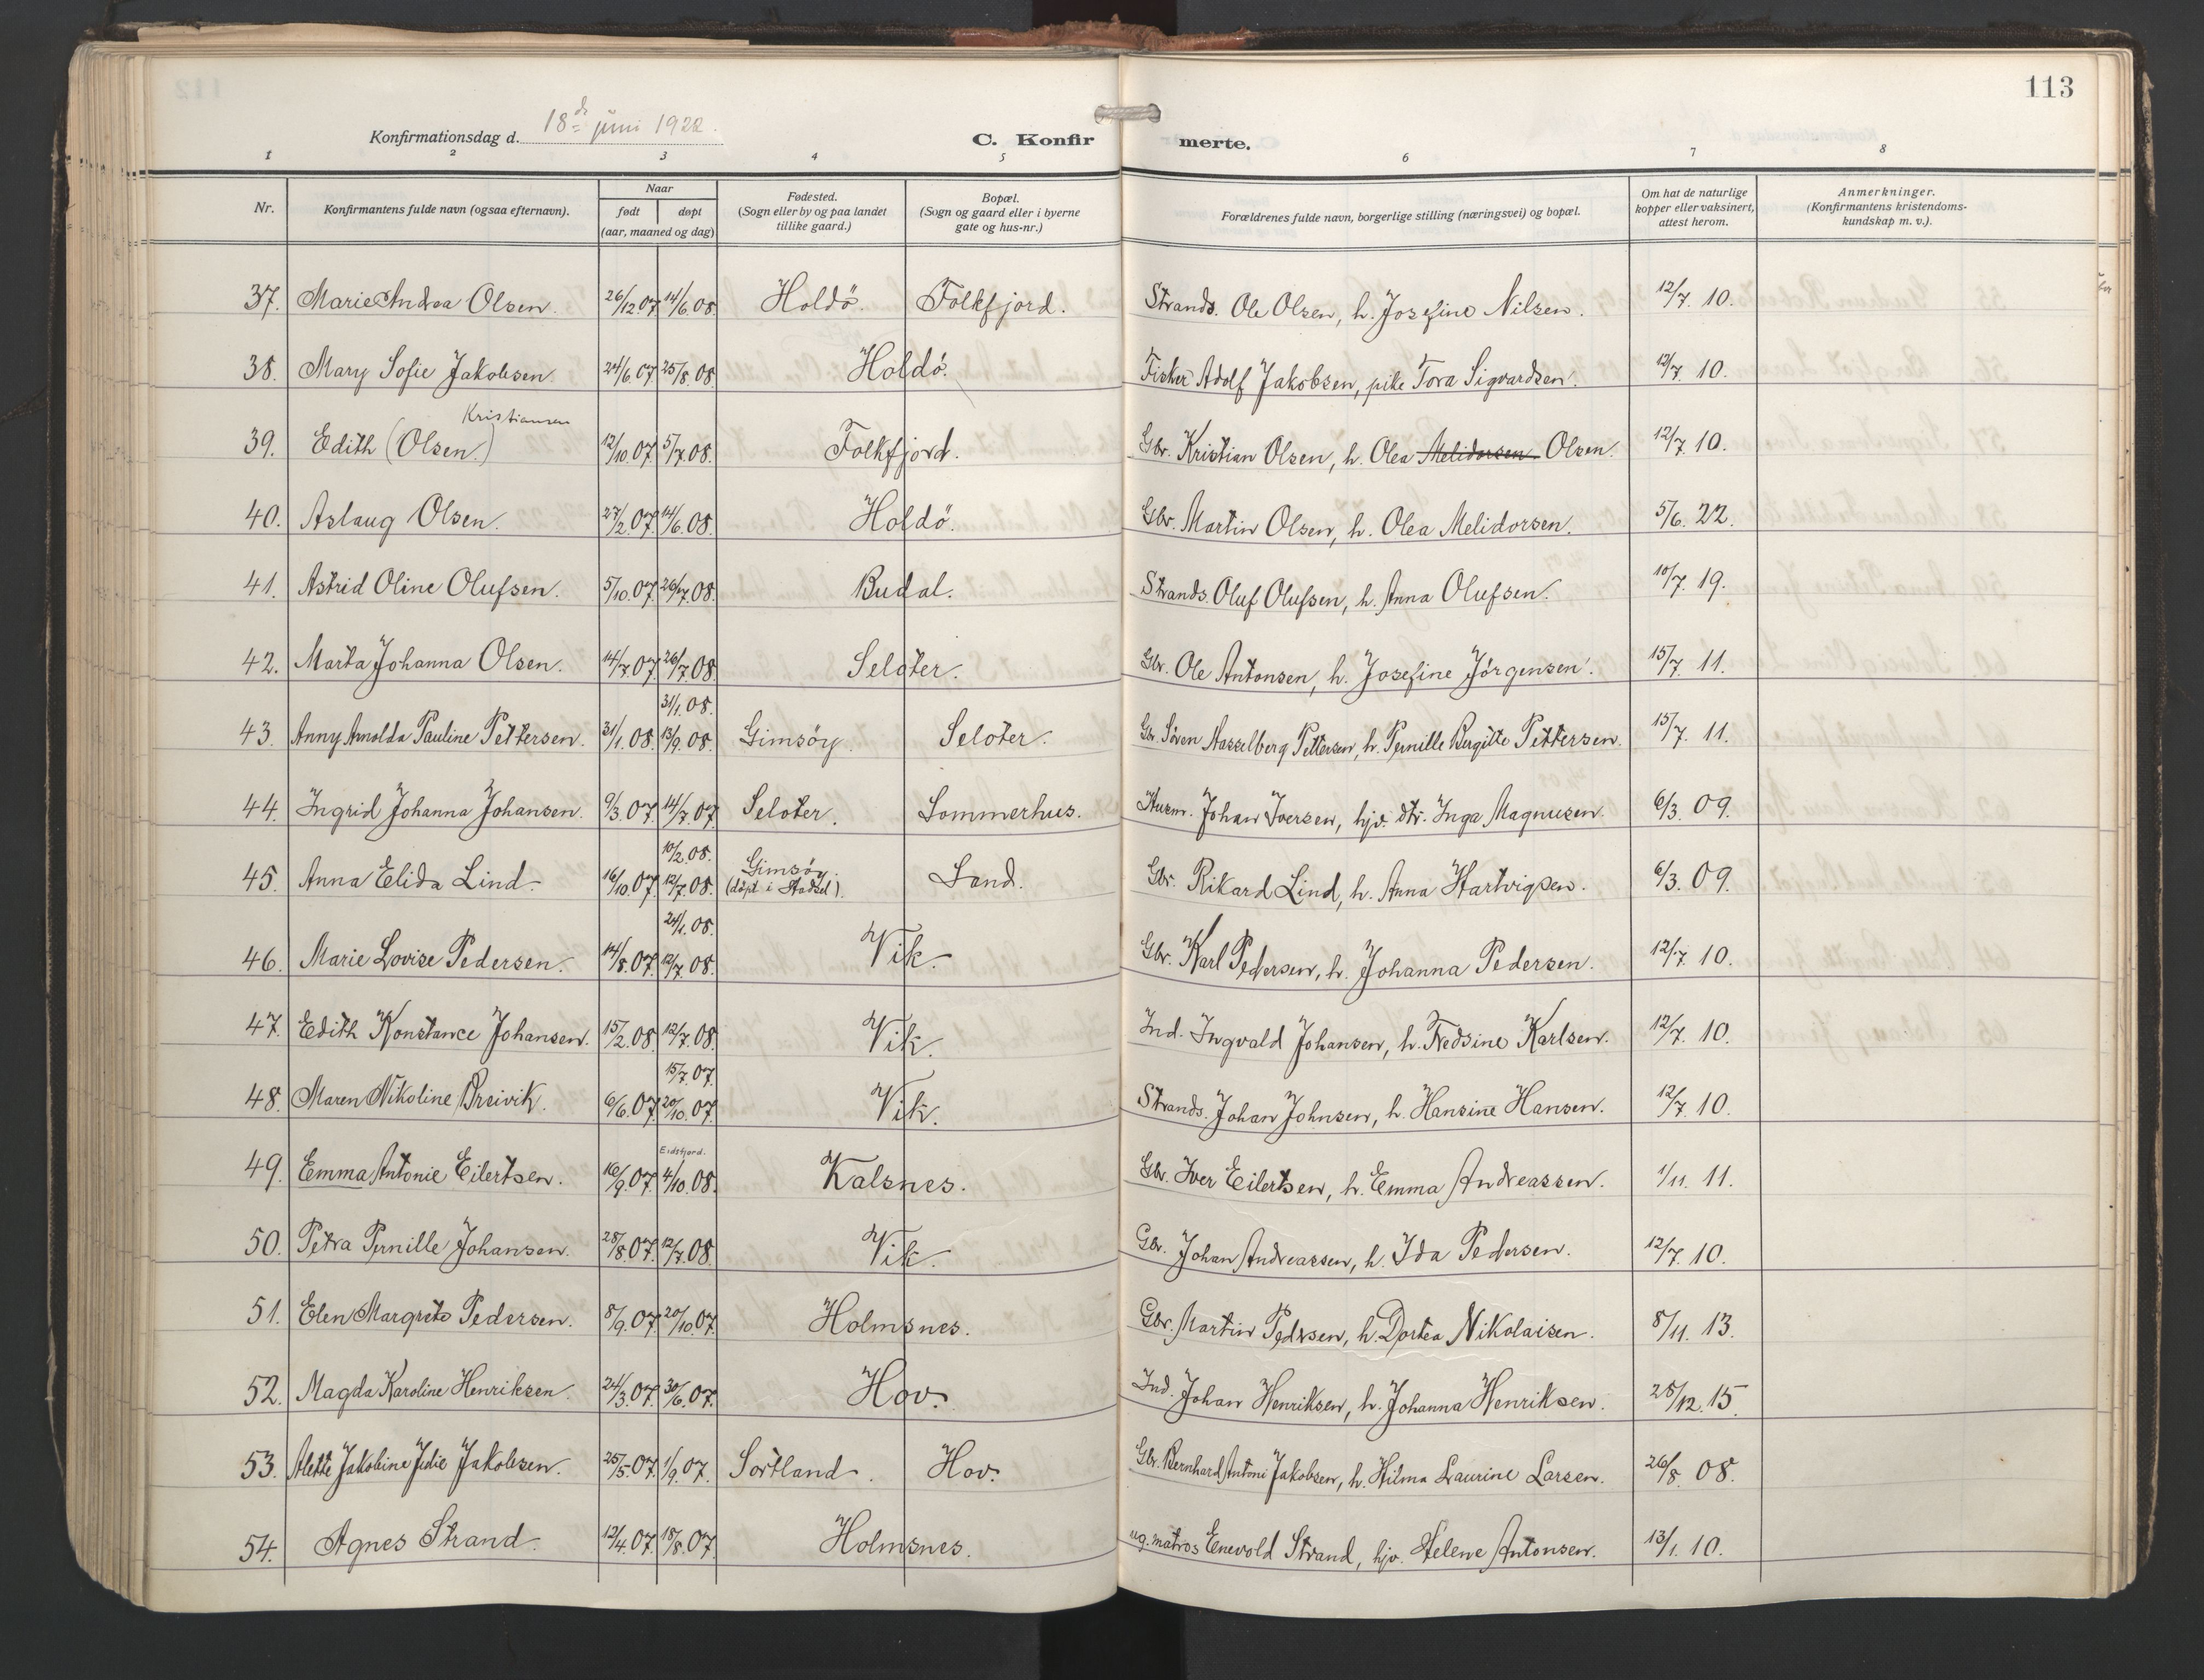 113
Konfirmationsdag d. 18de juni 1922.
C. Konfirmerte.
1 2 3 4 5 6 7 8
Nr. Konfirmantens fulde navn (ogsaa efternavn). Naar født døpt (aar, maaned og dag) Fødested. (Sogn eller by og paa landet tillike gaard.) Bopæl. (Sogn og gaard eller i byerne gate og hus-nr.) Forældrenes fulde navn, borgerlige stilling (næringsvei) og bopæl. Om hat de naturlige kopper eller vaksinert, attest herom. Anmerkninger. (Konfirmantens kristendoms-kundskap m. v.).
37. Marie Andrea Olsen. 26/12.07 14/6.08. Holdö. Folkfjord. Strands. Ole Olsen, h. Josefine Nilsen. 12/7. 10.
38. Mary Sofie Jakobsen. 24/6.07. 25/8.08. Holdö. Fisker Adolf Jakobsen, pike Tora Sigvardsen. 12/7. 10.
39. Edith (Olsen.) Kristiansen 12/10.07. 5/7.08. Folkfjord. Gbr. Kristian Olsen, h. Olea Melidorsen Olsen. 12/7. 10.
40. Aslaug Olsen. 27/2.07. 14/6.08. Holdö. Gbr. Martin Olsen, h. Olea Melidorsen. 5/6. 22.
41. Astrid Oline Olufsen. 5/10.07. 26/7.08. Budal. Strands. Oluf Olufsen, h. Anna Olufsen. 10/7. 19.
42. Marta Johanna Olsen. 14/7.07. 26/7.08. Seloter. Gbr. Ole Antonsen, h. Josefine Jörgensen. 15/7. 11.
31/1.08.
43. Anny Arnolda Pauline Pettersen. 31/1.08. 13/9.08. Gimsöy. Seloter. Gbr. Sören Hasselberg Pettersen, h. Pernille Bergitte Pettersen. 15/7. 11.
44. Ingrid Johanna Johansen. 9/3.07. 14/7.07 Seloter. Sommerhus. Husm. Johan Iversen, hjv. dtr. Inga Magnusen. 6/3. 09.
10/2.08.
45. Anna Elida Lind. 16/10.07. 12/7.08. Gimsöy. (döpt i Hadsel). Sand. Gbr. Rikard Lind, h. Anna Hartvigsen. 6/3. 09.
24/1.08.
46. Marie Lovise Pedersen. 14/8.07. 12/7.08. Vik. Gbr. Karl Pedersen, h. Johanna Pedersen. 12/7. 10.
47. Edith Konstance Johansen. 15/2.08. 12/7.08. Vik. Ind. Ingvald Johansen, h. Fredsine Karlsen. 12/7. 10.
15/7.07.
48. Maren Nikoline Breivik. 6/6.07. 20/10.07. Vik. Strands. Johan Johnsen, h. Hansine Hansen. 12/7. 10.
Eidsfjord.
49. Emma Antonie Eilertsen. 16/9.07. 4/10.08. Kalsnes. Gbr. Iver Eilertsen, h. Emma Andreassen. 1/11. 11.
50. Petra Pernille Johansen. 28/8.07. 12/7.08. Vik. Gbr. Johan Andreassen, h. Ida Pedersen. 12/7. 10.
51. Elen Margrete Pedersen. 8/9.07. 20/10.07. Holmsnes. Gbr. Martin Pedersen, h. Dortea Nikolaisen. 8/11. 13.
52. Magda Karoline Henriksen. 24/3.07. 30/6.07. Hov. Ind. Johan Henriksen, h. Johanna Henriksen. 28/12. 15.
53. Alette Jakobine Julie Jakobsen. 25/5.07. 1/9.07. Sortland. Hov. Gbr. Bernhard Antoni Jakobsen, h. Hilma Laurine Larsen. 26/8. 08.
54. Agnes Strand. 12/4.07. 18/8.07. Holmsnes. ug. matros Enevold Strand, hjv. Helene Antonsen. 13/1. 10.